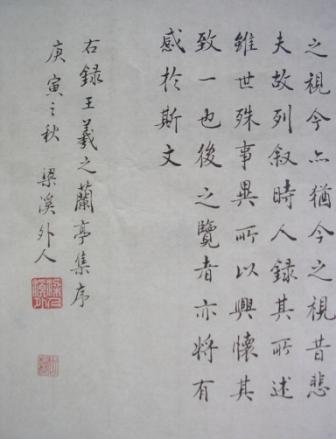 之視今亦猶今之視昔悲
夫故列叙時人錄其所述
雖世殊事異所以興懷其
致一也後之覽者亦將有
感於斯文
右錄王羲之蘭亭集序
庚寅之秋 梁溪外人